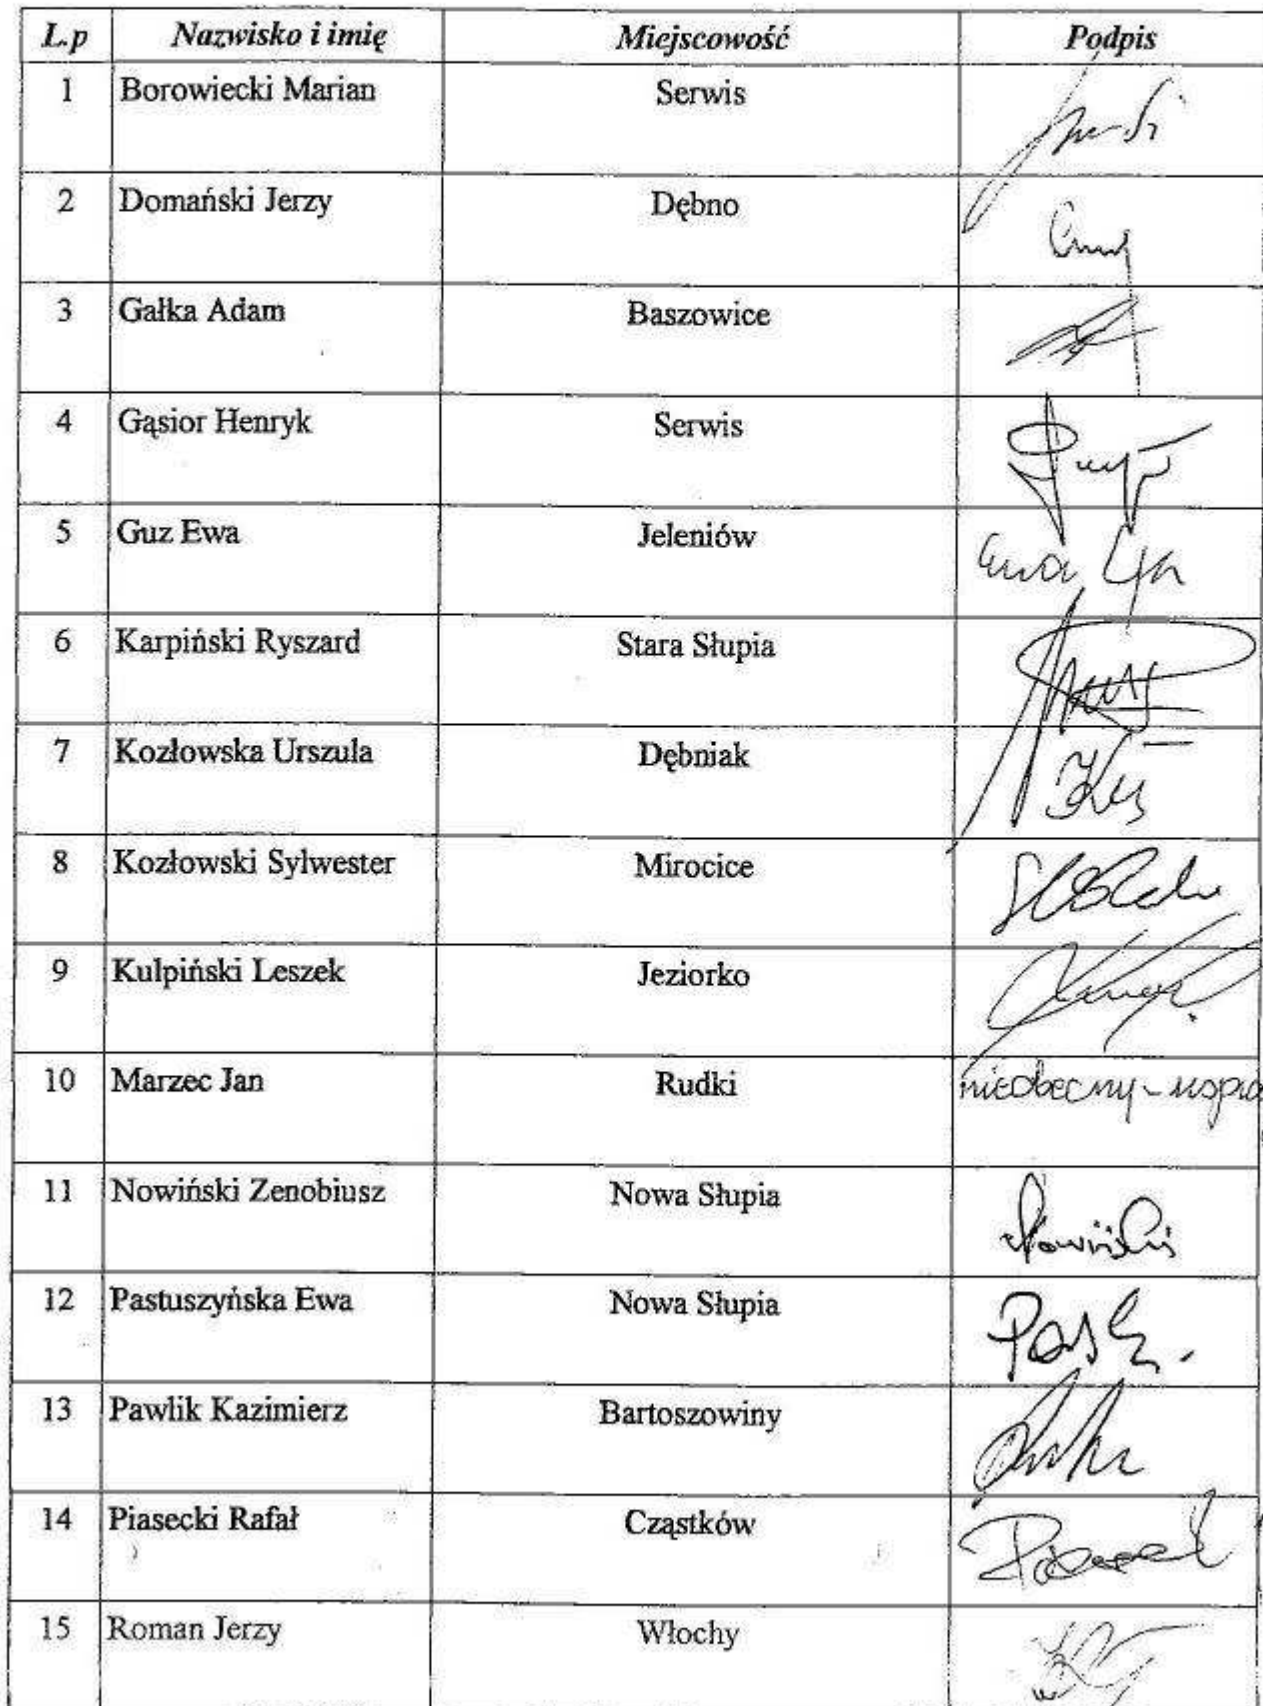 L.p Nazwisko i imię Miejscowość Podpis
1 Borowiecki Marian Serwis
2 Domański Jerzy Dębno
3 Gałka Adam Baszowice
4 Gąsior Henryk Serwis
5 Guz Ewa Jeleniów Ewa
6 Karpiński Ryszard Stara Słupia
7 Kozłowska Urszula Dębniak
8 Kozłowski Sylwester Mirocice
9 Kulpiński Leszek Jeziorko
10 Marzec Jan Rudki nieobecny - uspra
11 Nowiński Zenobiusz Nowa Słupia Nowiński
12 Pastuszyńska Ewa Nowa Słupia
13 Pawlik Kazimierz Bartoszowiny
14 Piasecki Rafał Cząstków
15 Roman Jerzy Włochy